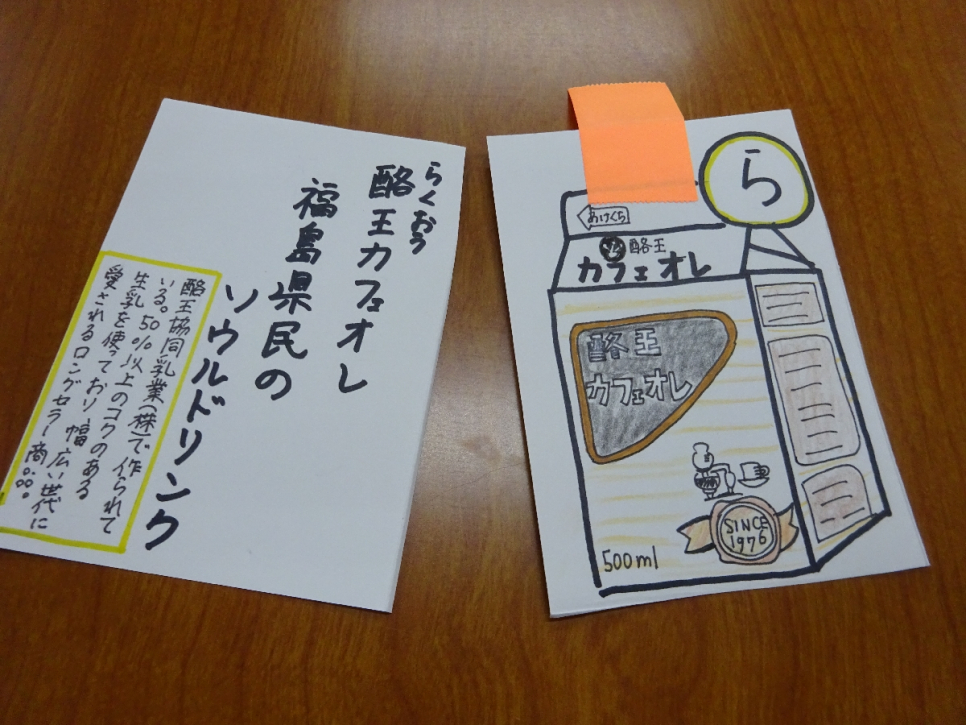 らくおう
酪王カフェオレ
福島県民の
ソウルドリンク
酪王協同乳業(株)で作られて
いる。50%以上のコクのある
生乳を使っており幅広い世代に
愛されるロングセラー商品。
ら
あけくち
酪王
カフェオレ
酪王
カフェオレ
SINCE
1976
500ml